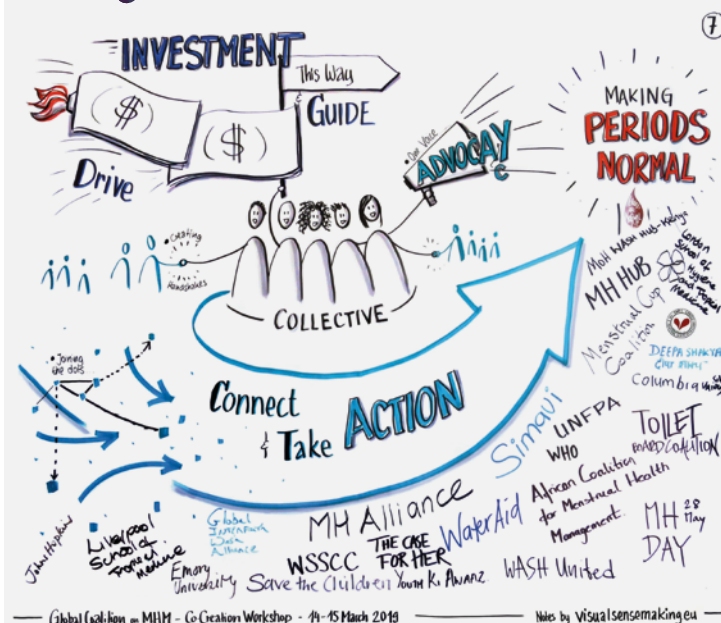 7
INVESTMENT
This Way
& GUIDE
Drive
($)
($)
• One Voice
ADVOCAY
MAKING
PERIODS
NORMAL
• Creating
Handshakes
COLLECTIVE
• Joining
the dots
Connect
& Take ACTION
MoH WASH Hub-Kenya
London
School of
Hygiene
and Tropical
Medicine
MH HUB
Menstrual Cup
Coalition
DEEPA SHAKYA
Columbia
Simavi
UNFPA
WHO
TOILET
BOARD COALITION
African Coalition
for Menstrual Health
Management.
MH 28
May
DAY
John Hopkins
Liverpool
School of
Tropical
Medicine
Global
Wash
Alliance
Emory
University
MH Alliance
WSSCC
THE CASE
FOR HER
WaterAid
Save the Children
YOUTH KI AWAAZ
WASH United
Global Coalition on MHM - Co Creation Workshop - 14-15 March 2019
Notes by visualsensemaking.eu